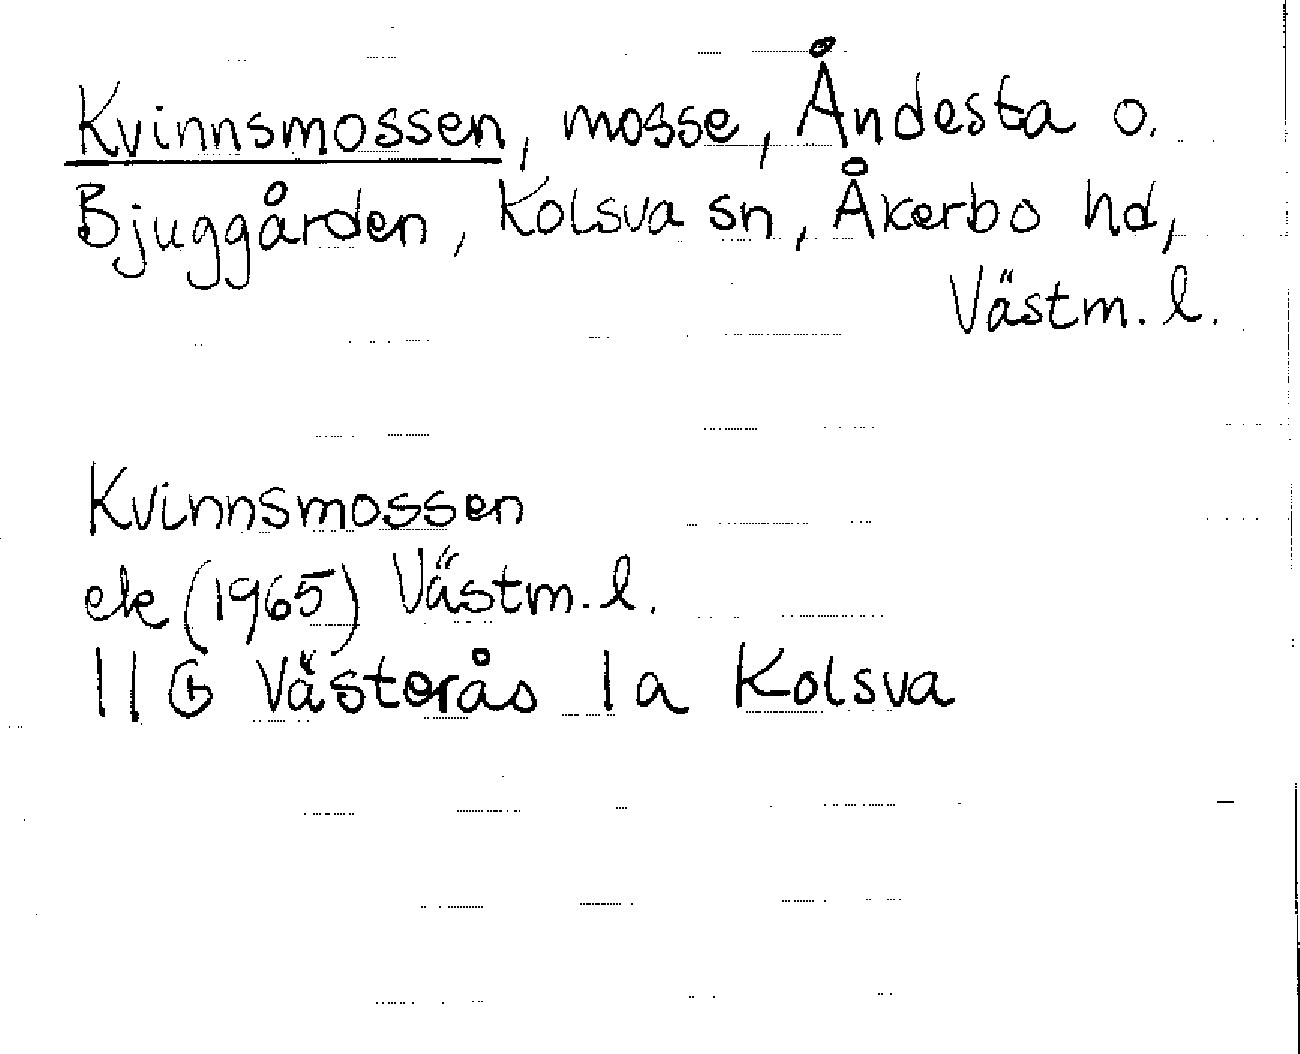 Kvinnsmossen, mosse, Åndesta o.
Bjuggården, Kolsva sn, Åkerbo hd,
Västm. l.
Kvinnsmossen
ek (1965) Västm. l.
11 G Västerås 1 a Kolsva